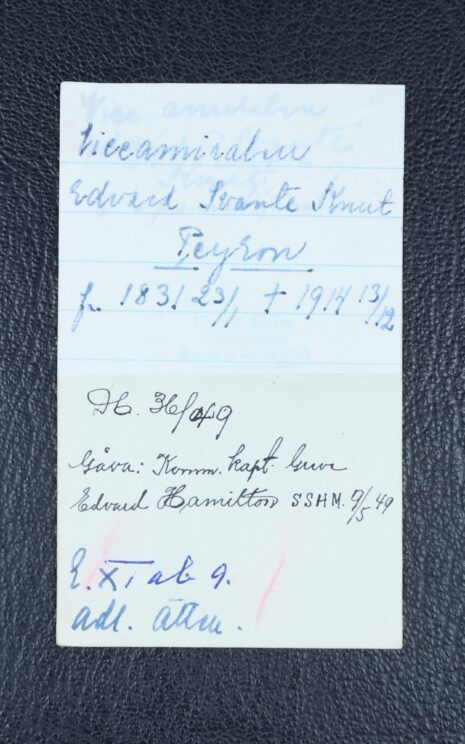 Viceamiralen
Edvard Svante Knut
Peyron
f. 1831 23/1 + 1914 13/12
D. 36/49
Gåva: Komm. kapt. Greve
Edvard Hamilton SSHM. 9/5 49
E. XI ab 9.
adl. ätten.